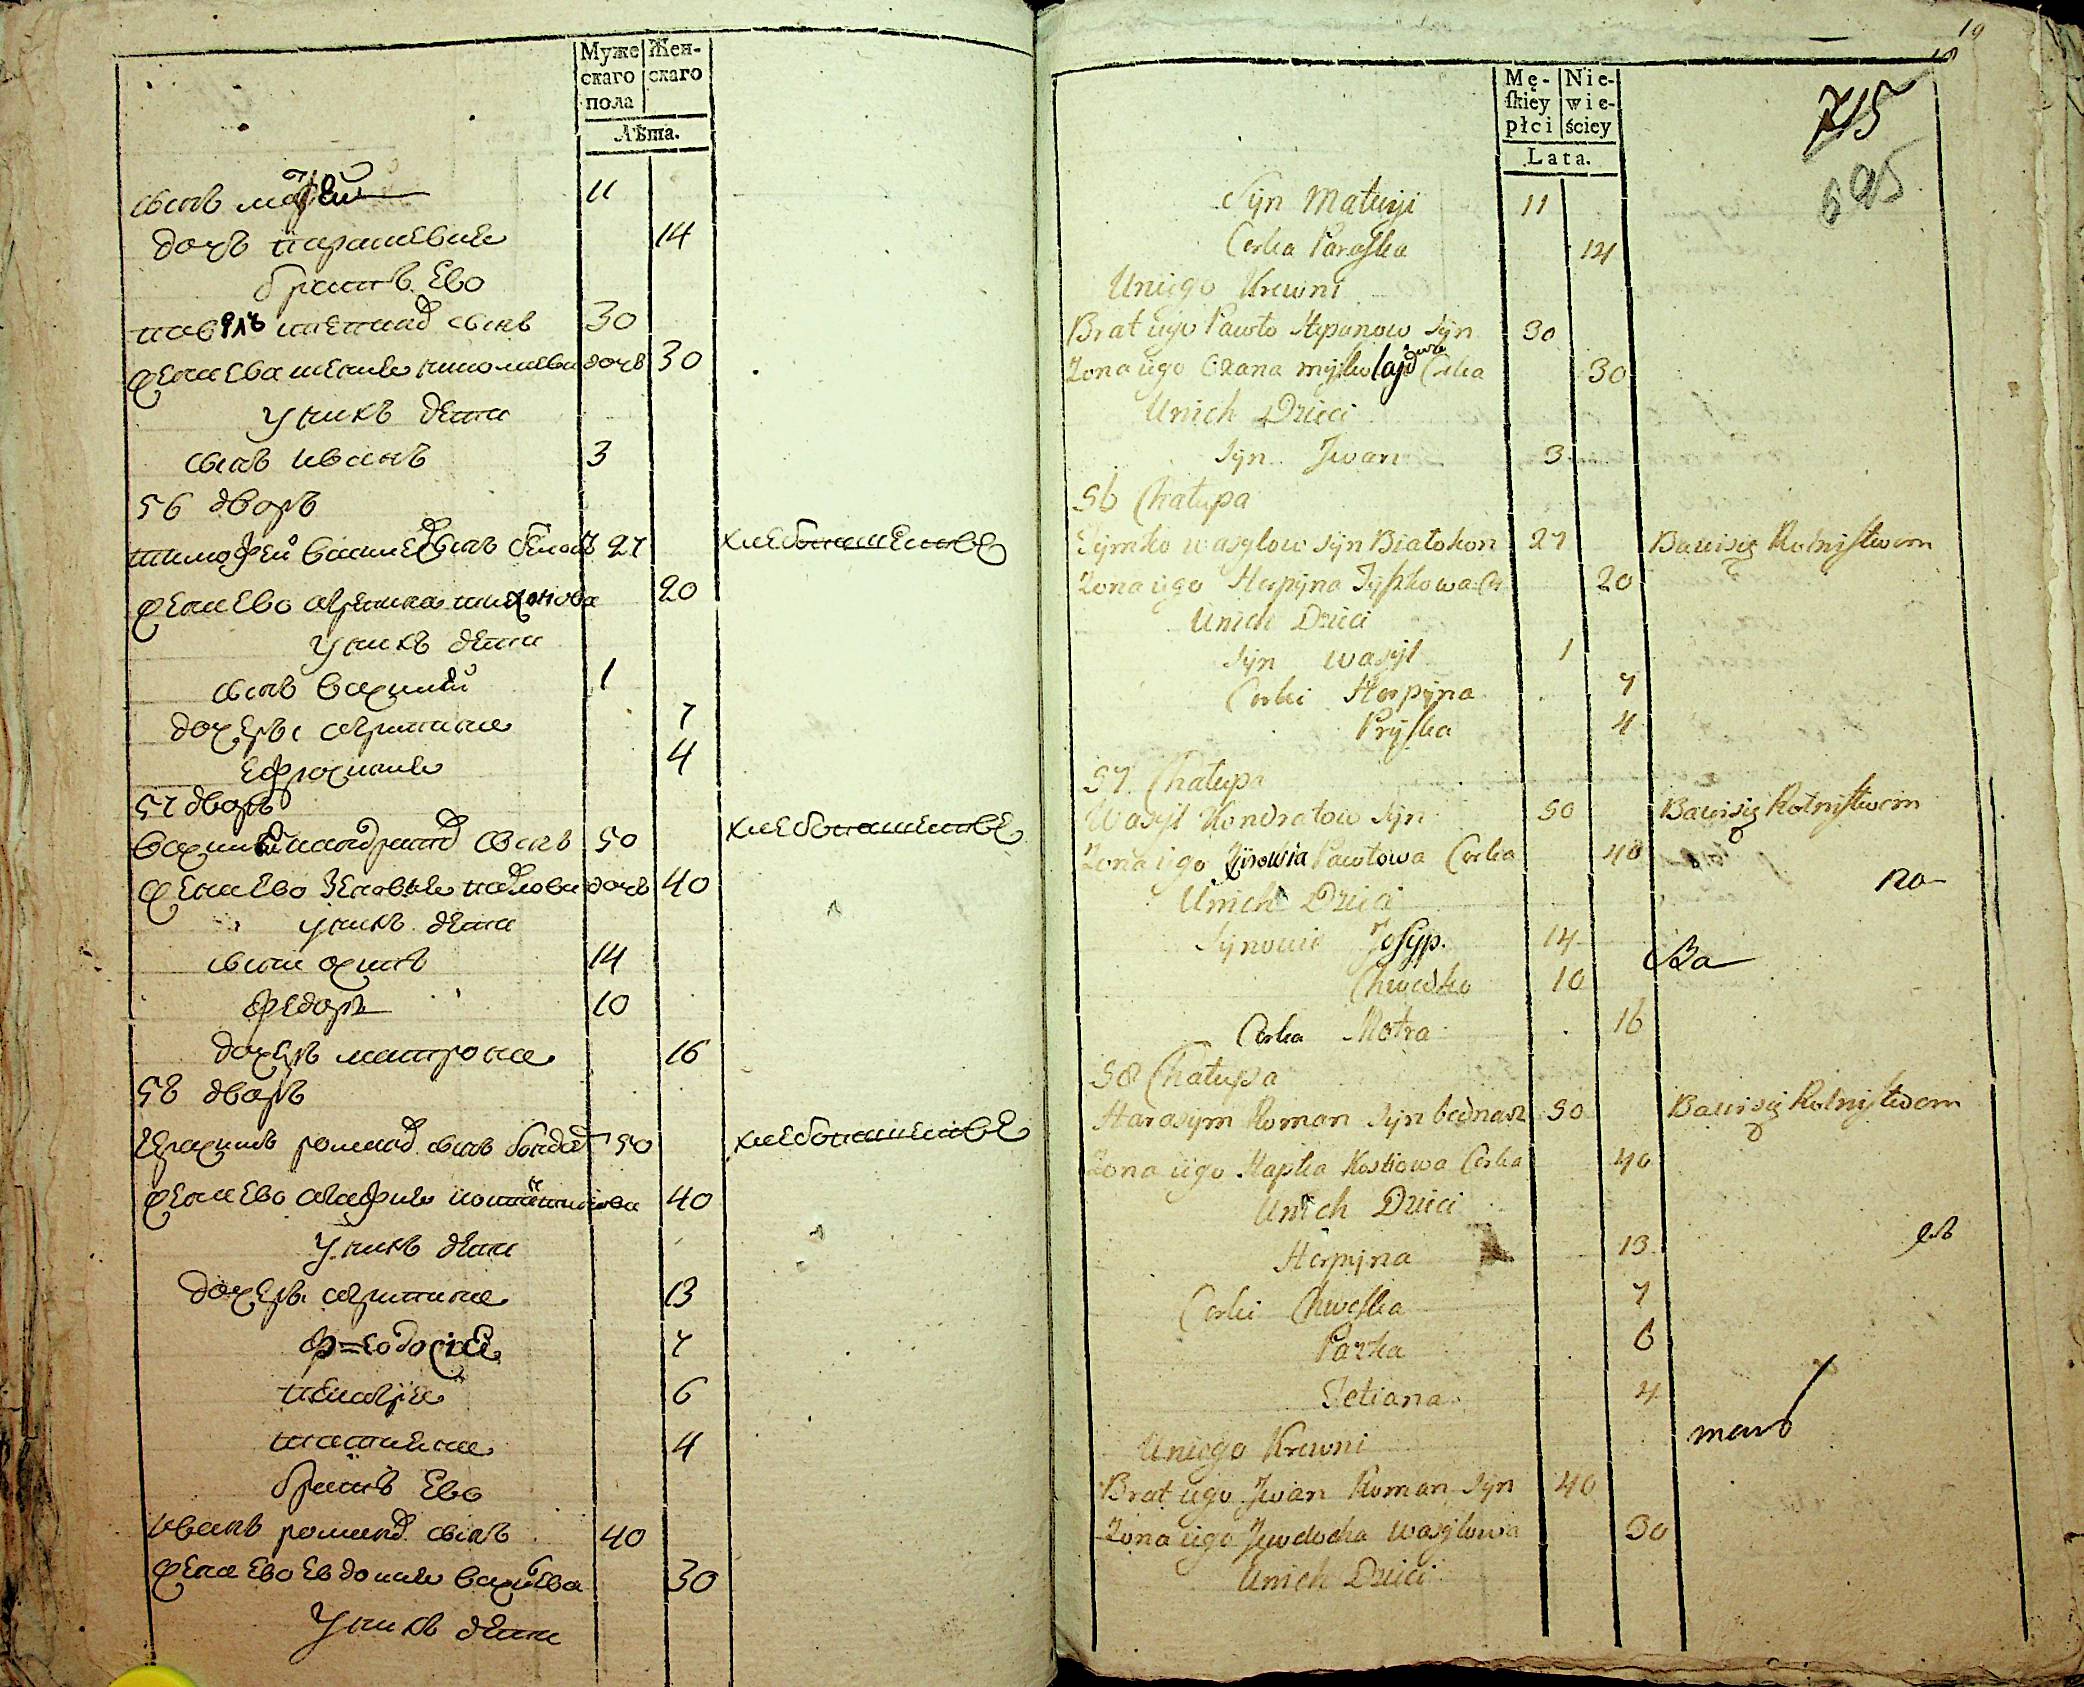 Муже
скаго
пола
Жен-
скаго
Лѣта.
сынъ матфей 11
дочь параскевия 14
братъ Ево
павелъ степанов сынъ 30
жена Ева николаева дочь 30
у нихъ дети
сынъ иванъ 3
56 дворъ
тимофей василев сынъ 27 хлебопашенствѐ
жена Ево агрепина тихонова 20
у нихъ дети
сынъ василий 1
дочери агрипина 7
ефросиния 4
57 дворъ
василий кандратов сынъ 50 хлебопашенстве
жена Ево зеновия павлова дочь 40
у нихъ дети
сыни осипъ 14
федоръ 10
дочерь матрона 16
58 дворъ
Герасимъ романов сынъ бондар 50 хлебопашенстве
жена Ево агафия костантинова 40
у нихъ дети
дочери агрипина 13
феодосия 7
пелагея 6
татияна 4
братъ Ево
иванъ романов сынъ 40
жена Ево Евдокия василева 30
у нихъ дети
19
18
Mę-
ſkiey
płci
Nie-
wie-
ściey
Lata.
715
695
Syn Matwij 11
Corka Paraſka 14
Uniego Krewni
Brat iego Pawło Stepanow Syn 30
Zona iego Mykołajowa Corka 30
Unich Dzieci
Syn Jwan 3
56 Chałupa
Tymko Wasylow Syn Białokon 27 Bawisię Rolniſtwem
Zona iego Herpyna Tyſzkowa Cor 20
Unich Dzieci
Syn Wasyl 1
Corki Herpyna 7
Pryſka 4
57 Chałupa
Wasyl Kondratow Syn 50 Bawisię Rolniſtwem
Zona iego Zynowia Pawłowa Corka 40
no
Unich Dzieci
Synowie Josyp. 14
Chwedko 10
Corka Motra 16
58 Chałupa
Harasym Roman Syn bednarz 50 Bawisię Rolniſtwem
Zona iego Hapka Kostiowa Corka 40
Unich Dzieci
Herpyna 13
Corki Chweſka 7
Pazka 6
Tetiana 4
Uniego Krewni
Brat iego Jwan Roman Syn 40
Zona iego Jewdocha Wasylowa 30
Unich Dzieci